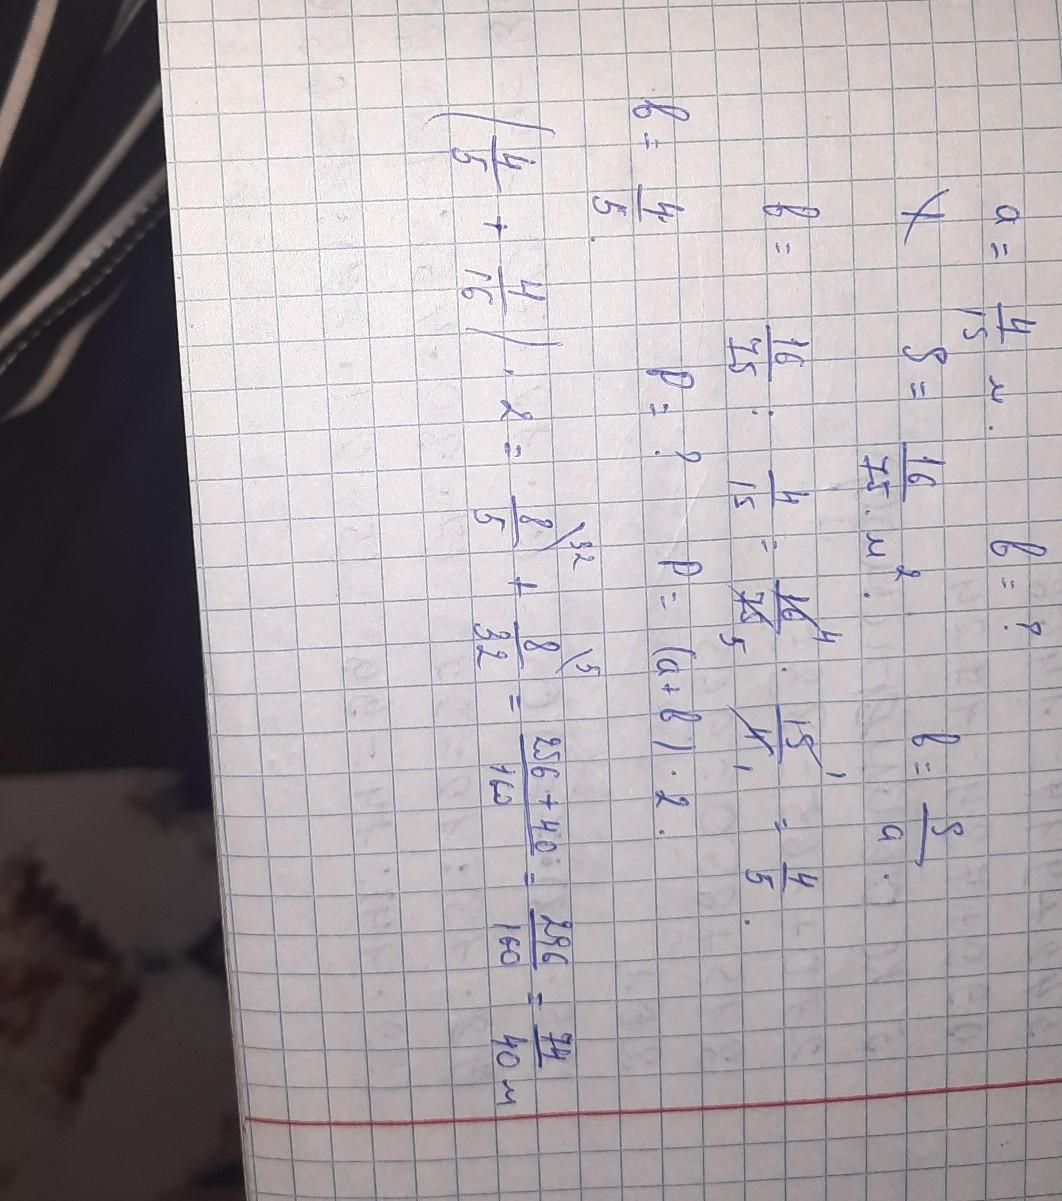 a = 4/15 м. b = ?
S = 16/75 м². b = S/a.
b = 16/75 : 4/15 = 16/75 · 15/4 = 4/5.
b = 4/5. P = ? P = (a + b) · 2.
(4/5 + 4/16) · 2 = 8/5 + 8/32 = 256 + 40/160 = 296/160 = 74/40 м